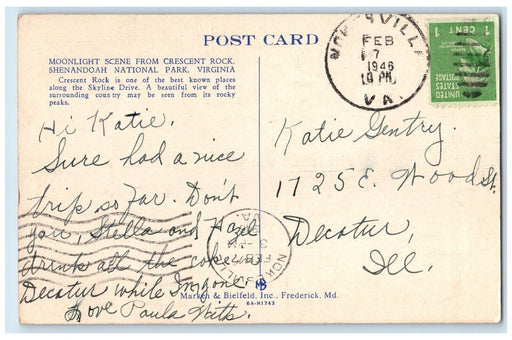 POST CARD
MOONLIGHT SCENE FROM CRESCENT ROCK,
SHENANDOAH NATIONAL PARK, VIRGINIA
Crescent Rock is one of the best known places
along the Skyline Drive. A beautiful view of the
surrounding country may be seen from its rocky
peaks.
FEB
7
1946
VA.
UNITED
STATES
POSTAGE
1 CENT 1
Hi Katie.
Sure had a nice
trip so far. Don't
you, Stella and Hazel
drink all the coke in
Decatur while I'm gone.
Love Paula
Katie Gentry.
1725 E. Wood St.
Decatur,
Ill.
FEB 7
VA.
MB
Marken & Bielfeld, Inc., Frederick, Md.
6A-H1743